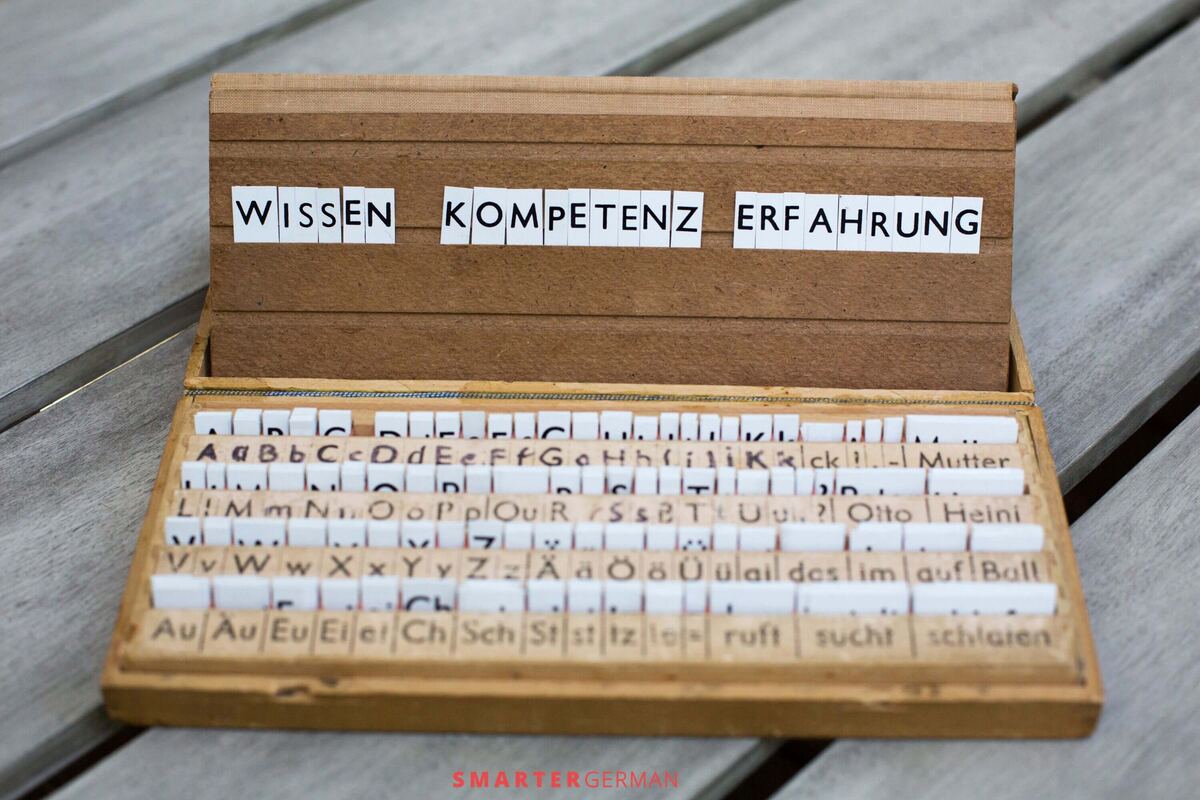 WISSEN KOMPETENZ ERFAHRUNG
A a B b C c D d E e F f G g H h I i J j K k ck ! . - Mutter
L l M m N n O o P p Qu R r S s ß T t U u , ? Otto Heini
V v W w X x Y y Z z Ä ä Ö ö Ü ü ai das im auf Ball
Au Äu Eu Ei ei Ch Sch St st tz ie = ruft sucht schlafen
SMARTERGERMAN